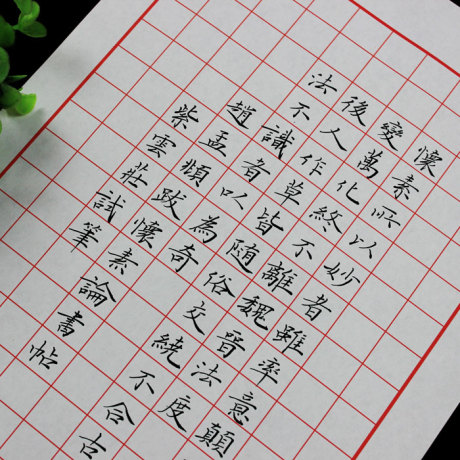 懷素所以妙者雖率意顛
變萬化終不離魏晉法度
後人作草皆随俗交繞不合古
法不識者以為奇
趙孟頫跋懷素論書帖
紫雲莊試筆